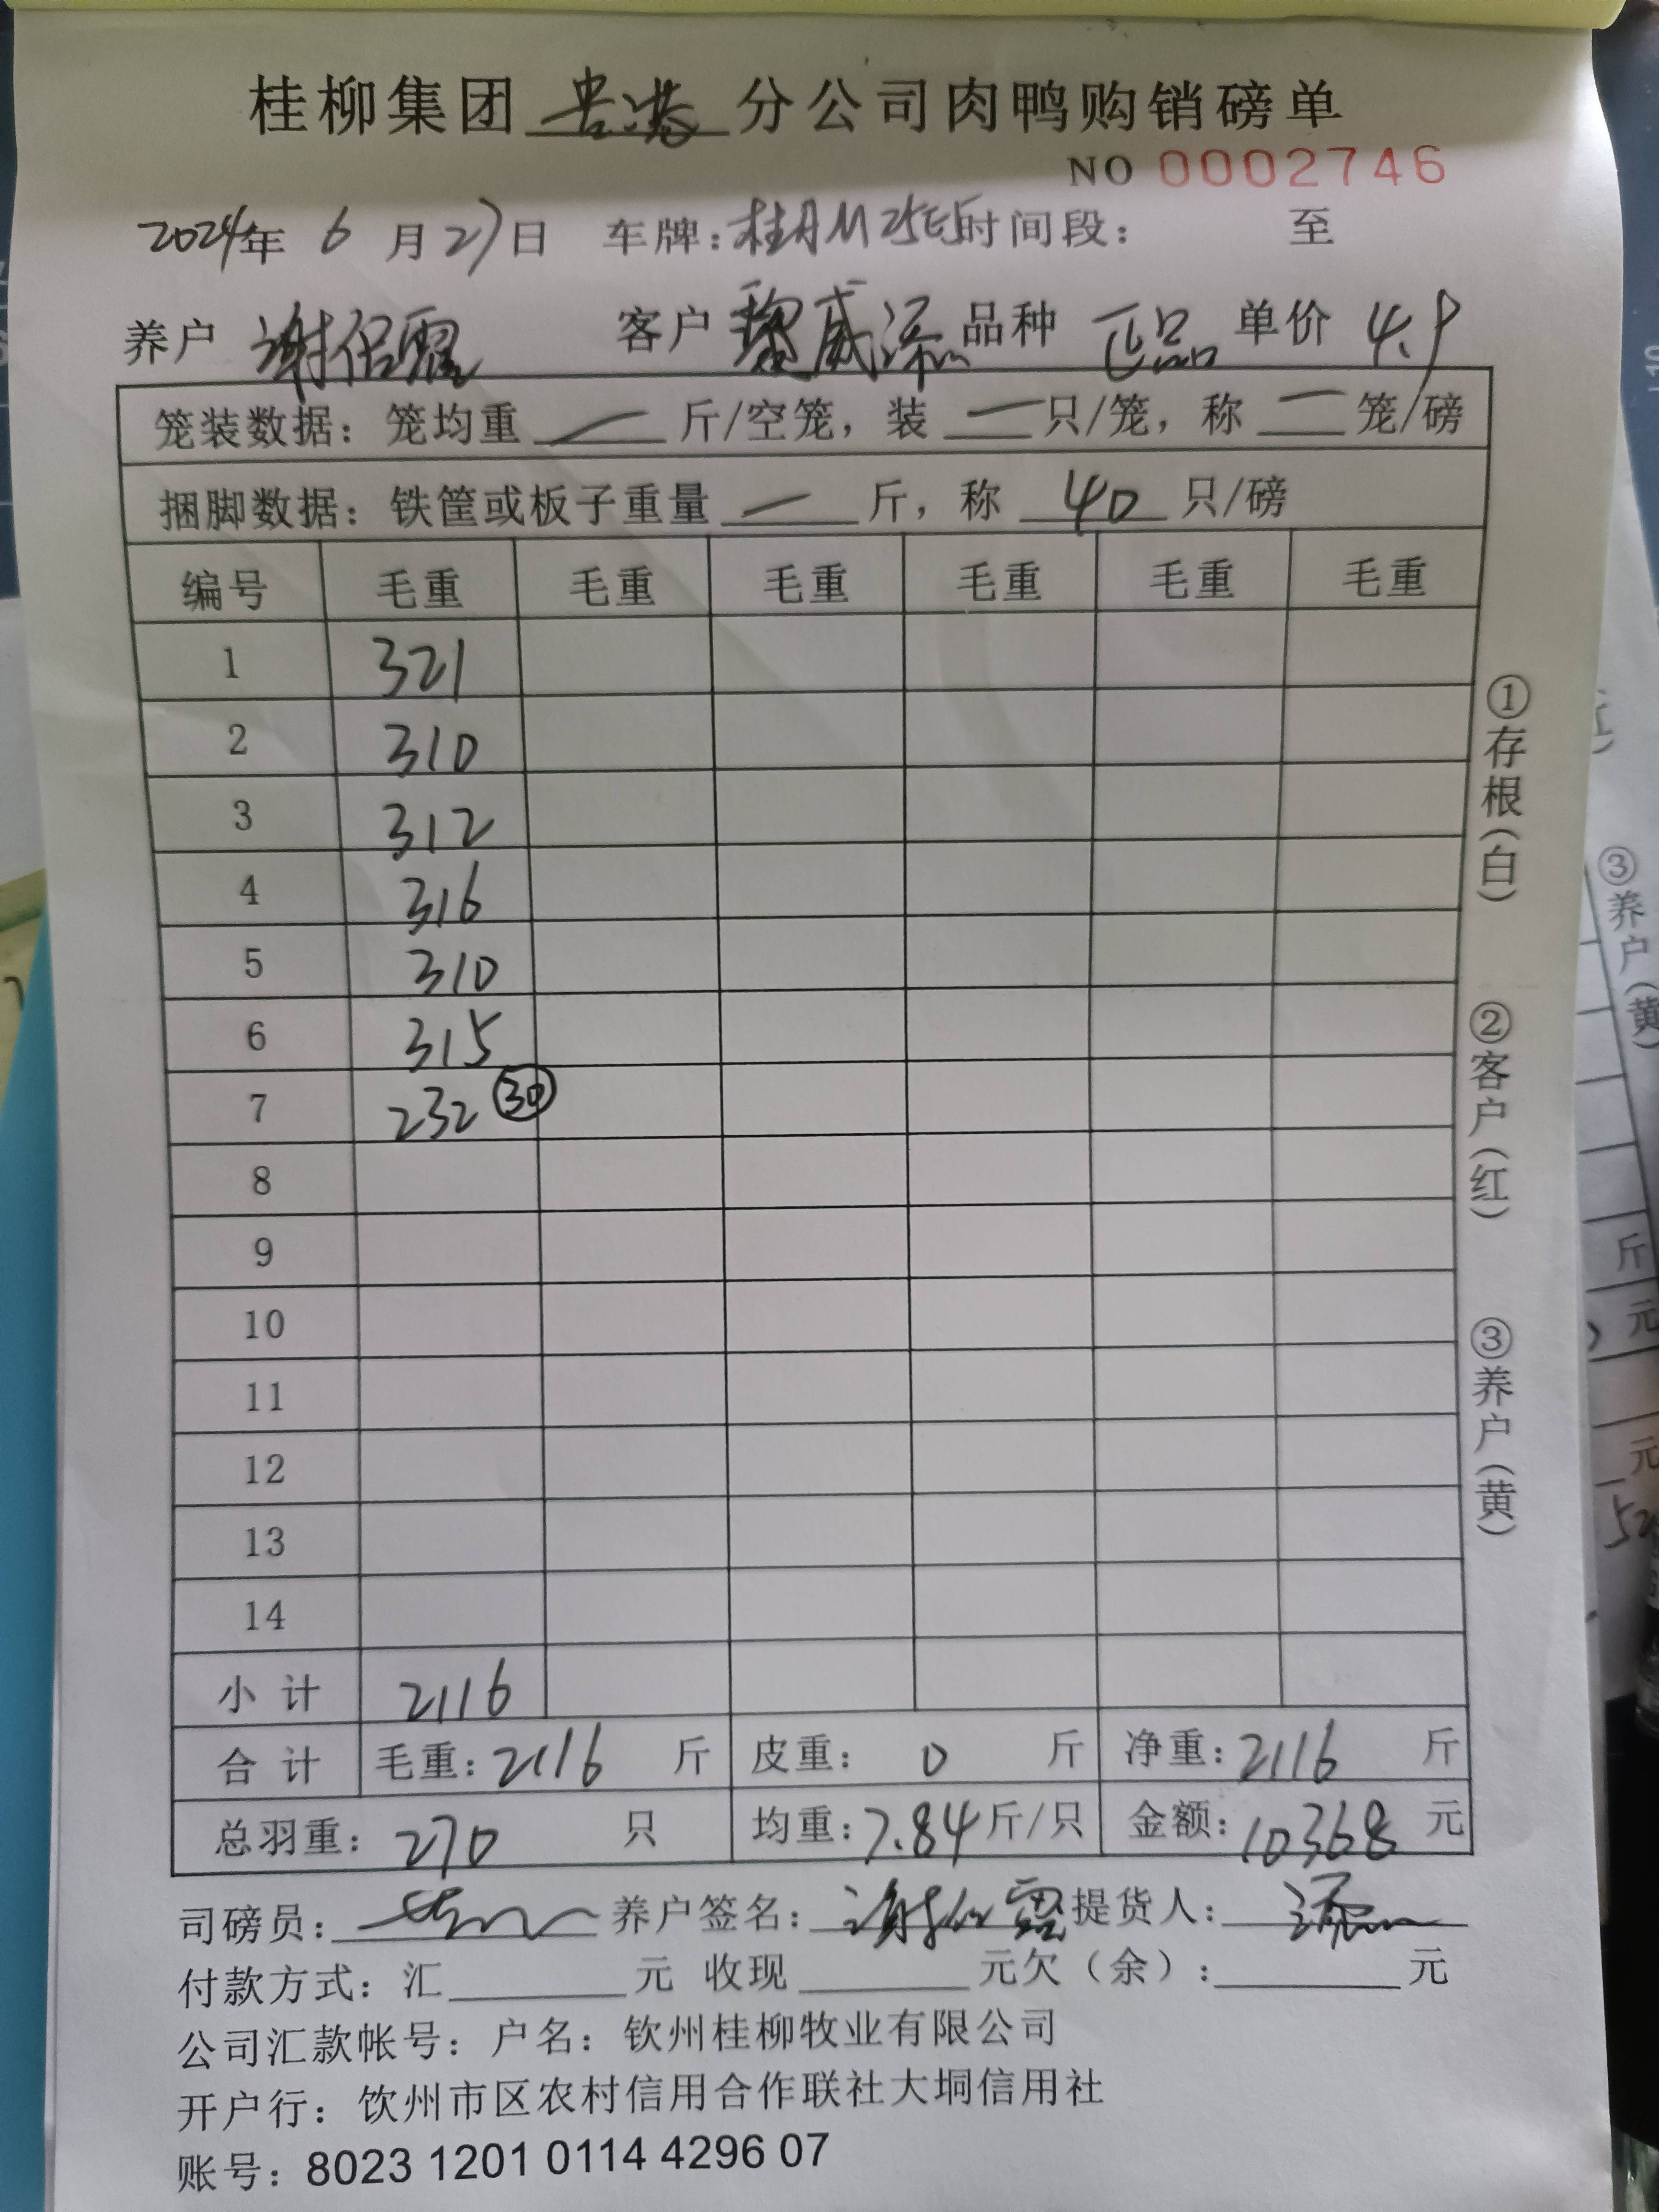 桂柳集团 贵港 分公司肉鸭购销磅单
NO 0002746
2024年 6 月 27 日 车牌：桂AM25E5 时间段： 至
养户 谢侶霞 客户 黎威添 品种 正品 单价 4.9
笼装数据：笼均重 — 斤/空笼，装 — 只/笼，称 — 笼/磅
捆脚数据：铁筐或板子重量 — 斤，称 40 只/磅
编号 毛重 毛重 毛重 毛重 毛重 毛重
1 321
2 310
3 312
4 316
5 310
6 315
7 232 ㉚
8
9
10
11
12
13
14
小计 2116
合计 毛重：2116 斤 皮重：0 斤 净重：2116 斤
总羽重：270 只 均重：7.84 斤/只 金额：10368 元
司磅员： 养户签名： 提货人：添
付款方式：汇 元 收现 元欠（余）： 元
公司汇款帐号：户名：钦州桂柳牧业有限公司
开户行：钦州市区农村信用合作联社大垌信用社
账号：8023 1201 0114 4296 07
①存根（白）
②客户（红）
③养户（黄）
③养户（黄）
斤
元
元